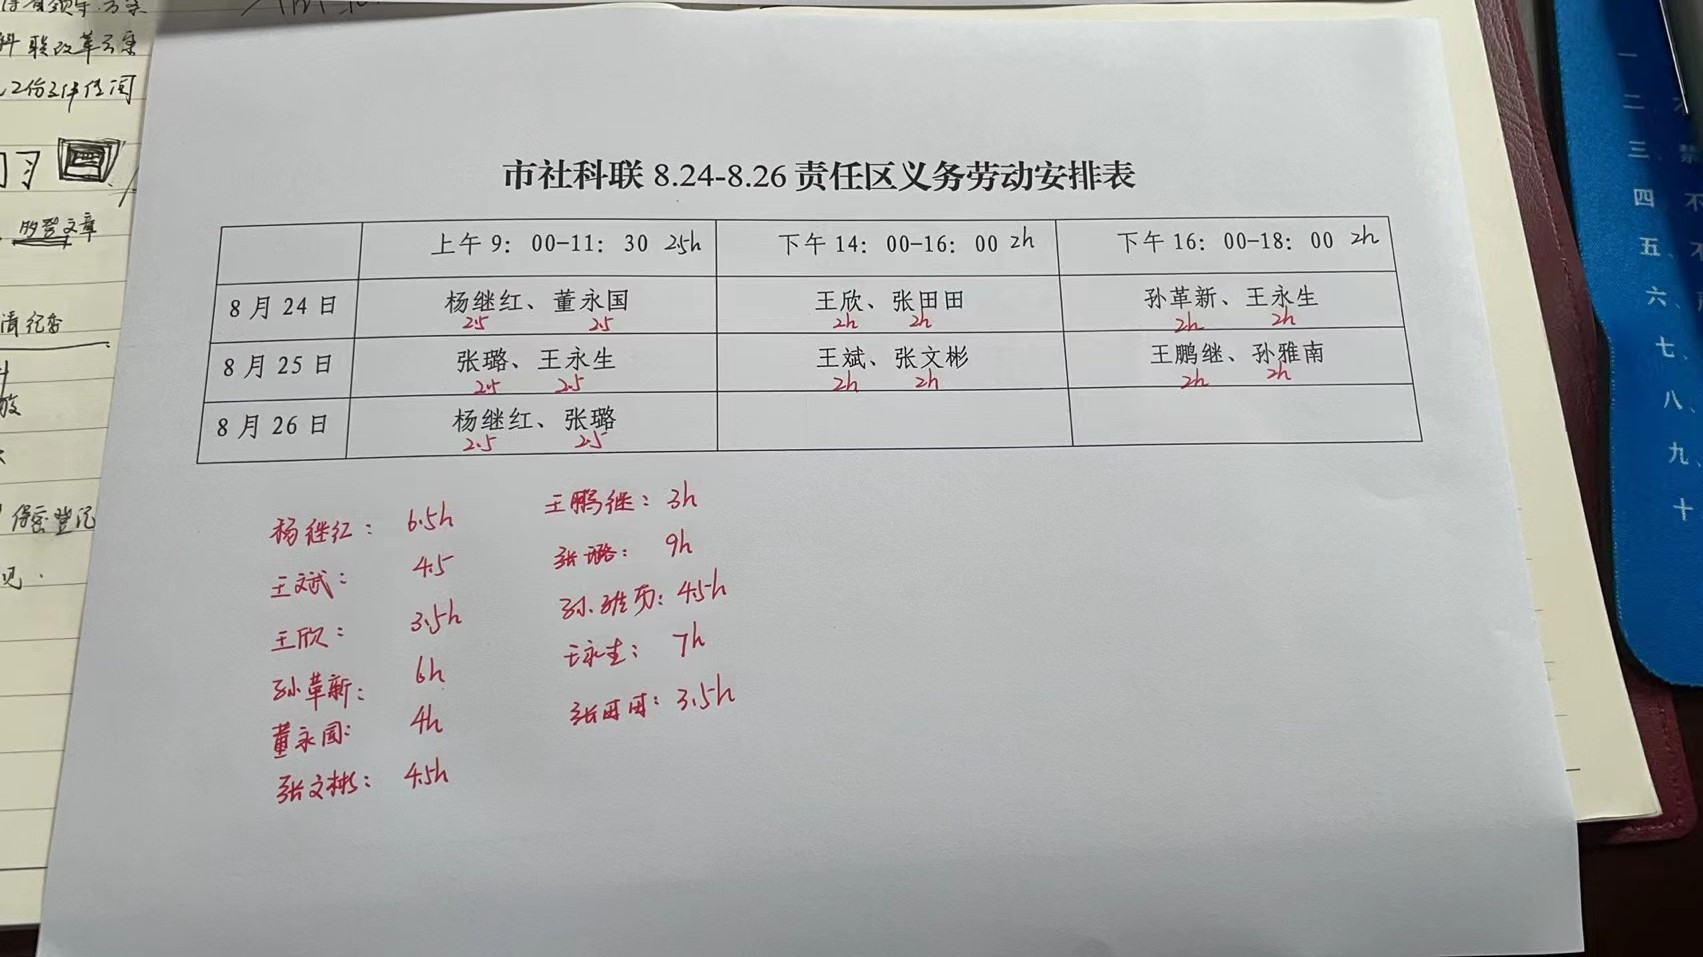 科联改革方案
市社科联 8.24-8.26 责任区义务劳动安排表
上午 9：00-11：30 2.5h 下午 14：00-16：00 2h 下午 16：00-18：00 2h
8 月 24 日 杨继红、董永国 王欣、张田田 孙革新、王永生
2.5 2.5 2h 2h 2h 2h
8 月 25 日 张璐、王永生 王斌、张文彬 王鹏继、孙雅南
2.5 2.5 2h 2h 2h 2h
8 月 26 日 杨继红、张璐
2.5 2.5
杨继红： 6.5h 王鹏继： 3h
王斌： 4.5 张璐： 9h
王欣： 3.5h 孙雅南： 4.5h
孙革新： 6h 王永生： 7h
董永国： 4h 张田田： 3.5h
张文彬： 4.5h
保密登记
见.
一
二、
三、禁
四、不
五、不
六、
七、
八、
九、
十